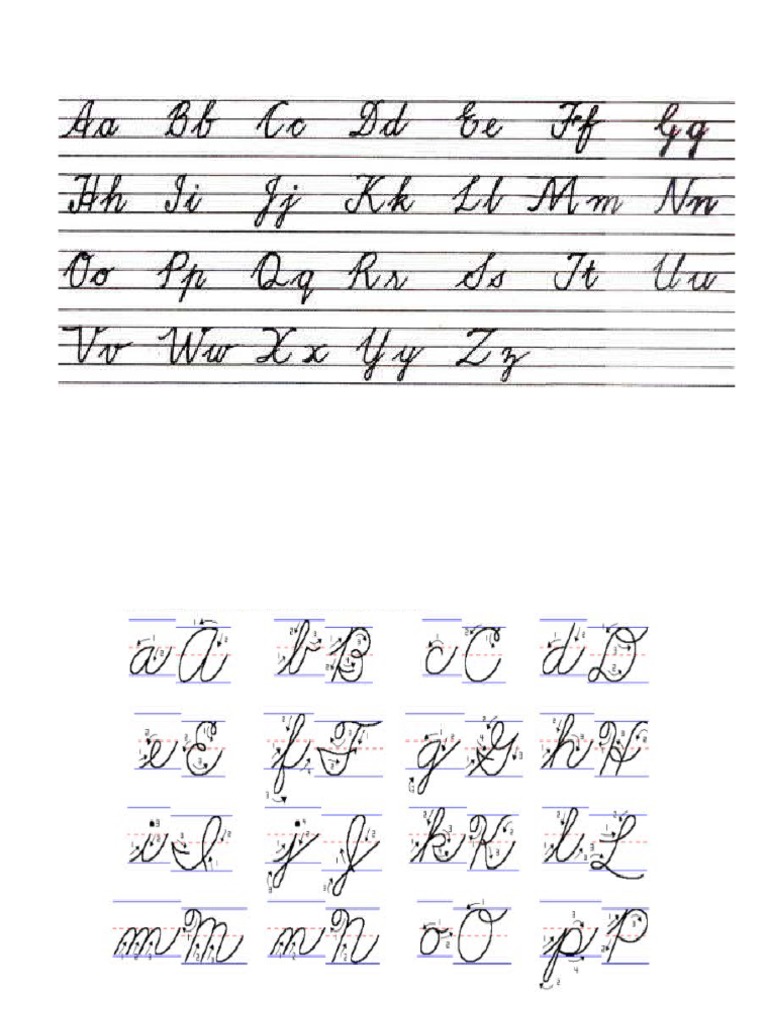 Aa Bb Cc Dd Ee Ff Gg
Hh Ii Jj Kk Ll Mm Nn
Oo Pp Qq Rr Ss Tt Uu
Vv Ww Xx Yy Zz
a A b B c C d D
e E f F g G h H
i I j J k K l L
m M n N o O p P